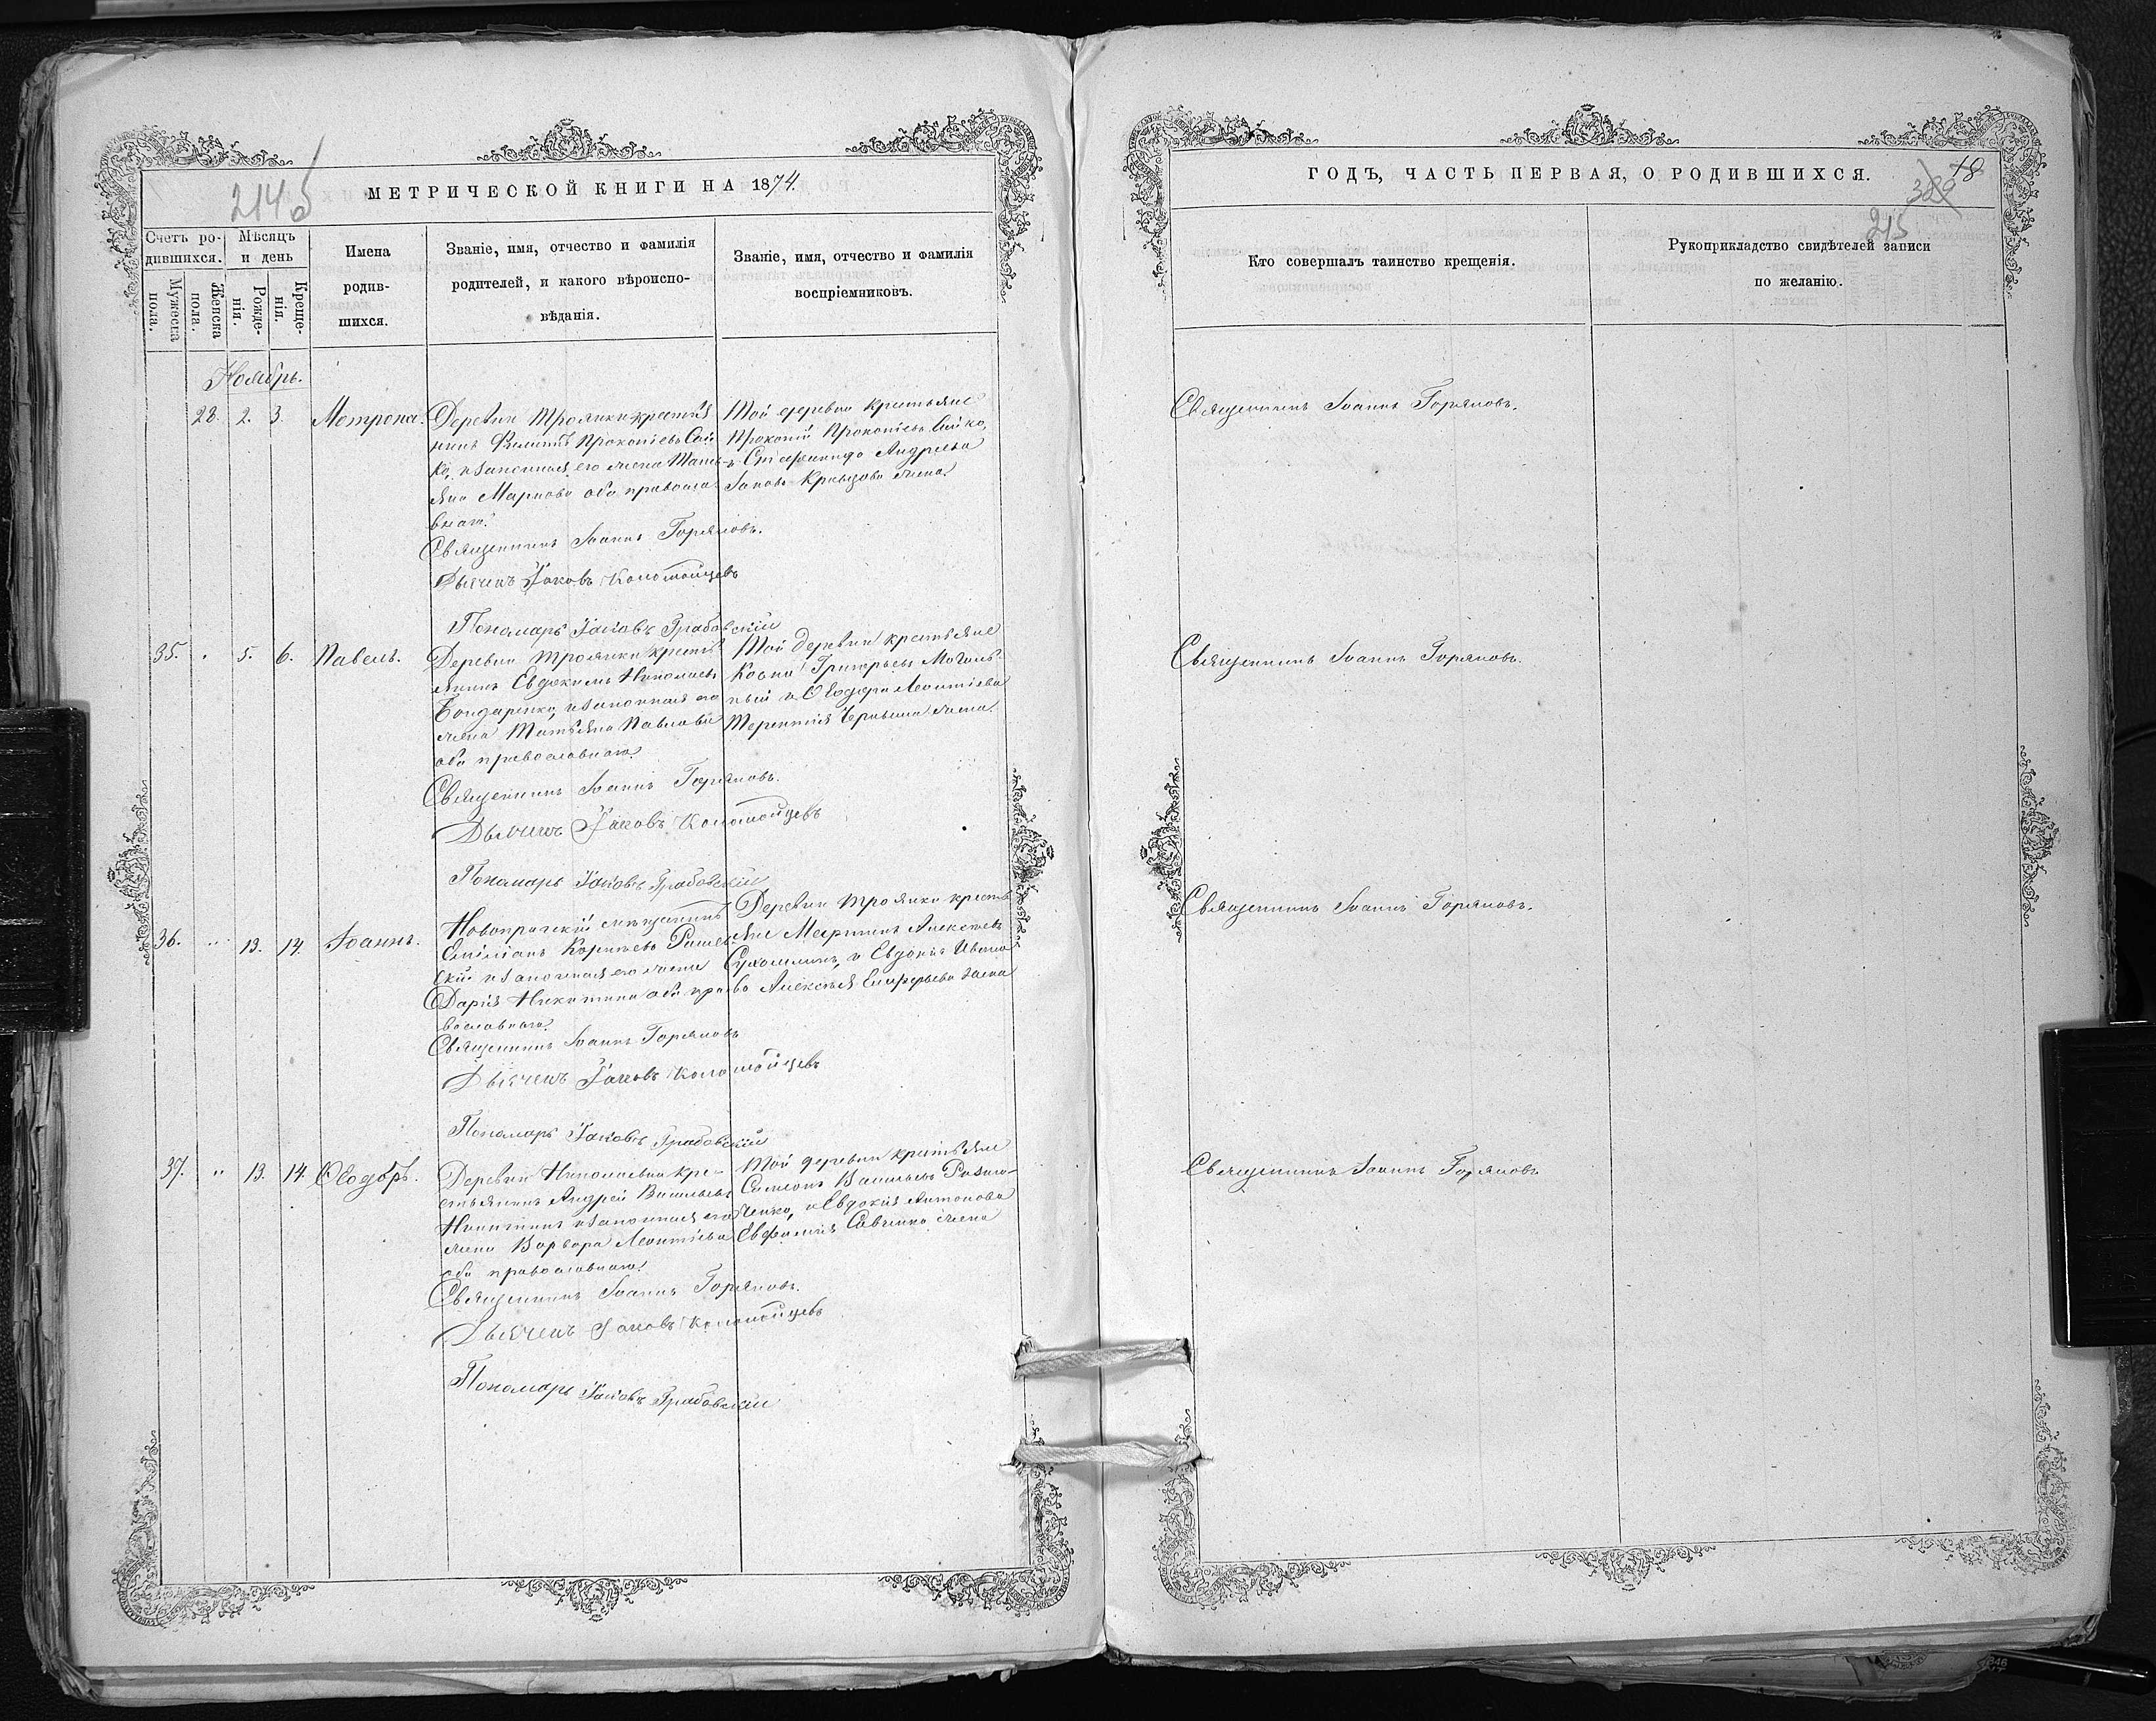 214б
МЕТРИЧЕСКОЙ КНИГИ НА 1874.
Счетъ ро-
дившихся.
Мужеска
пола.
Женска
пола.
Мѣсяцъ
и день
Рожде-
нія.
Креще-
нія.
Имена
родив-
шихся.
Званіе, имя, отчество и фамилія
родителей, и какого вѣроиспо-
вѣданія.
Званіе, имя, отчество и фамилія
воспріемниковъ.
Ноябрь.
28. 2. 3. Матрона.
Деревни Троянки крестья
нинъ Филиппъ Прокопіевъ Сай
ко, и законная его жена Тать
яна Маркова оба православ
наго.
Священникъ Іоаннъ Горяновъ.
Дьячекъ Іаковъ Коломойцевъ
Пономарь Іаковъ Грабовскій
Той деревни крестьяне
Прокопій Прокопіевъ Сайко,
и Стефанида Андреева
Іакова Кравцова жена.
35. 5. 6. Павелъ.
Деревни Троянки кресть
янинъ Евдокимъ Николаевъ
Бондаренко, и законная его
жена Татьяна Павлова
оба православнаго.
Священникъ Іоаннъ Горяновъ.
Дьячекъ Іаковъ Коломойцевъ
Пономарь Іаковъ Грабовскій
Той деревни крестьяне
Косма Григорьевъ Могиль
ный и Ѳеодора Леонтіева
Терентія Черныша жена.
36. " 13. 14. Іоаннъ.
Новопражскій мѣщанинъ
Емиліанъ Корнѣевъ
и законная его жена
Дарія Никитина оба пра
вославнаго.
Священникъ Іоаннъ Горяновъ
Дьячекъ Іаковъ Коломойцевъ
Пономарь Іаковъ Грабовскій
Деревни Троянки кресть
яне Мартинъ Алексѣевъ
Сухомлинъ, и Евдокія Ивано
ва Алексѣя жена
37. " 13. 14. Ѳеодоръ.
Деревни Николаевки кре-
стьянинъ Андрей Васильевъ
Никитинъ и законная его
жена Варвара Леонтіева
оба православнаго.
Священникъ Іоаннъ Горяновъ.
Дьячекъ Іаковъ Коломойцевъ
Пономарь Іаковъ Грабовскій
Той деревни крестьяне
Симеонъ Васильевъ
и Евдокія Антонова
Евфимія Савченко жена
ГОДЪ, ЧАСТЬ ПЕРВАЯ, О РОДИВШИХСЯ.
18
389
215
Кто совершалъ таинство крещенія.
Рукоприкладство свидѣтелей записи
по желанію.
Священникъ Іоаннъ Горяновъ.
Священникъ Іоаннъ Горяновъ.
Священникъ Іоаннъ Горяновъ.
Священникъ Іоаннъ Горяновъ.